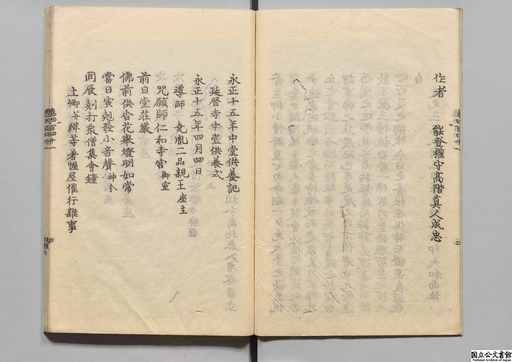 作者 能登権守高階真人成忠
永正十五年中堂供養記
延暦寺中堂供養式
永正十五年四月四日
導師 堯胤二品親王座主
咒願師仁和寺宮御室
前日堂荘厳
佛前供香花挙燈明如常
當日寅剋発小音聲神分
同辰剋打衆僧集會鐘
上卿以下着幄屋催行雑事
国立公文書館
National Archives of Japan